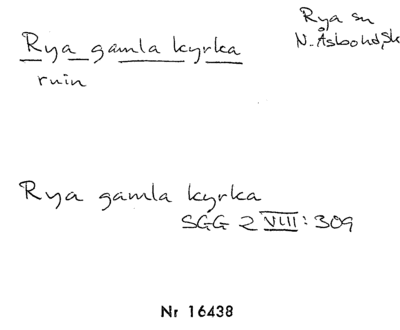 Rya gamla kyrka
ruin
Rya sn
N. Åsbo hd, Sk
Rya gamla kyrka
SGG 2 VIII: 309
Nr 16438